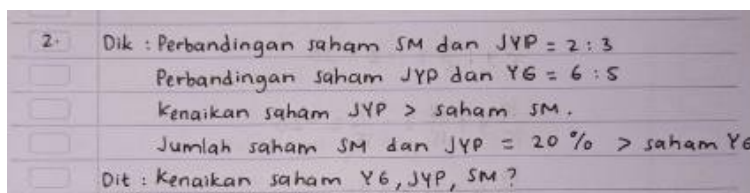 2. Dik : Perbandingan saham SM dan JYP = 2 : 3
Perbandingan saham JYP dan YG = 6 : 5
Kenaikan saham JYP > saham SM.
Jumlah saham SM dan JYP = 20 % > saham YG
Dit : Kenaikan saham YG, JYP, SM ?